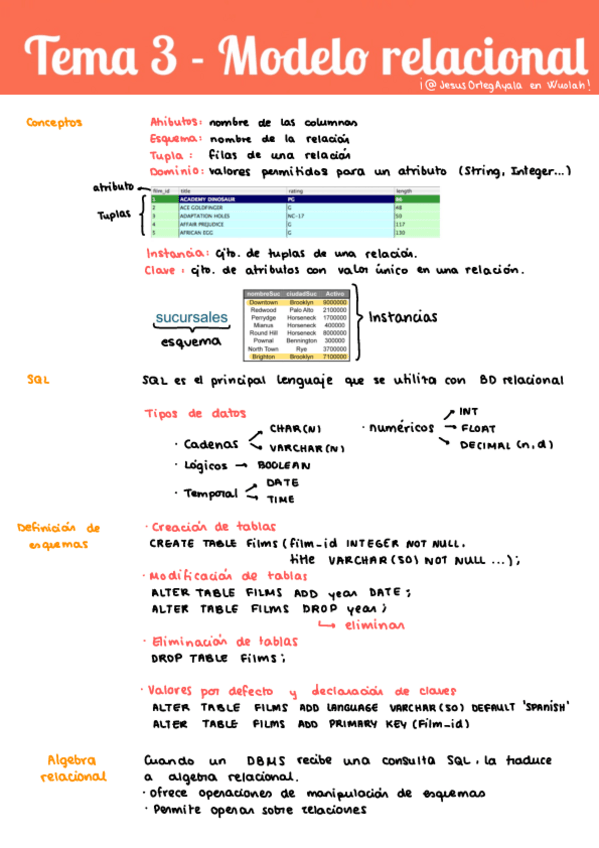 Tema 3 - Modelo relacional
¡@JesusOrtegAyala en Wuolah!
Conceptos
Atributos: nombre de las columnas
Esquema: nombre de la relación
Tupla: filas de una relación
Dominio: valores permitidos para un atributo (String, Integer...)
atributo
film_id title rating length
Tuplas
1 ACADEMY DINOSAUR PG 86
2 ACE GOLDFINGER G 48
3 ADAPTATION HOLES NC-17 50
4 AFFAIR PREJUDICE G 117
5 AFRICAN EGG G 130
Instancia: cjto. de tuplas de una relación.
Clave: cjto. de atributos con valor único en una relación.
sucursales
esquema
nombreSuc ciudadSuc Activo
Downtown Brooklyn 9000000
Redwood Palo Alto 2100000
Perrydge Horseneck 1700000
Mianus Horseneck 400000
Round Hill Horseneck 8000000
Pownal Bennington 300000
North Town Rye 3700000
Brighton Brooklyn 7100000
Instancias
SQL
SQL es el principal lenguaje que se utiliza con BD relacional
Tipos de datos
· Cadenas
CHAR(N)
VARCHAR(N)
· numéricos
INT
FLOAT
DECIMAL (n,d)
· Lógicos → BOOLEAN
· Temporal
DATE
TIME
Definición de esquemas
· Creación de tablas
CREATE TABLE Films (film-id INTEGER NOT NULL,
title VARCHAR(50) NOT NULL ...);
· Modificación de tablas
ALTER TABLE FILMS ADD year DATE;
ALTER TABLE FILMS DROP year;
eliminar
· Eliminación de tablas
DROP TABLE Films;
· Valores por defecto y declaración de claves
ALTER TABLE FILMS ADD LANGUAGE VARCHAR(50) DEFAULT 'SPANISH'
ALTER TABLE FILMS ADD PRIMARY KEY (Film-id)
Algebra relacional
Cuando un DBMS recibe una consulta SQL, la traduce
a algebra relacional.
· ofrece operaciones de manipulación de esquemas
· Permite operar sobre relaciones